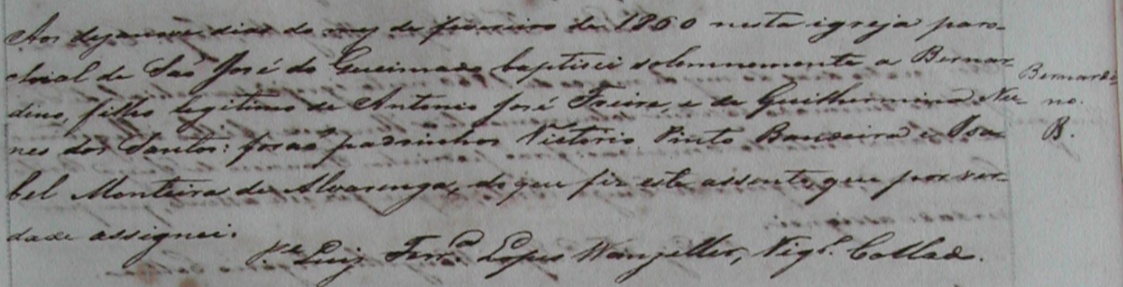 Aos dezanove dias do mez de fevreiro de 1860 nesta igreja paro-
chial de São José do Queimado baptisei solemnemente a Bernar-
dino, filho legitimo de Antonio José Freire, e de Guilhermina Nu-
nes dos Santos: forão padrinhos Victorio Pinto Bandeira e Isa-
bel Monteira de Alvarenga, do que fiz este assento, que por ver-
dade assignei.
Pe. Luiz Ferra. Lopes Wanzeller, Vigo. Collado.
Bernardi-
no.